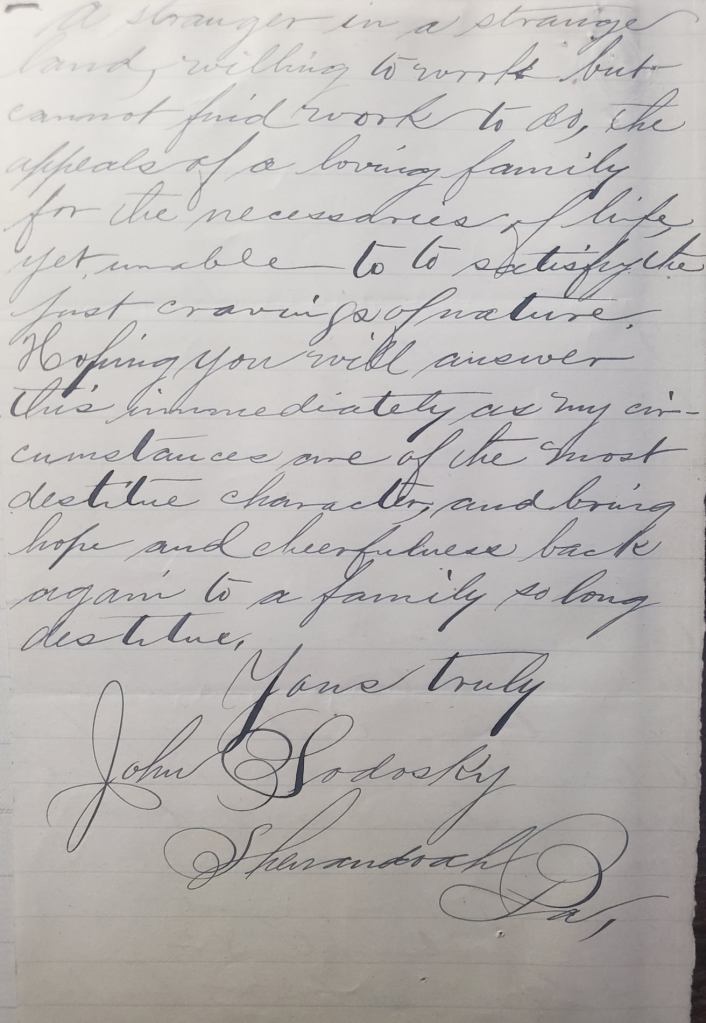 A stranger in a strange
land, willing to work but
cannot find work to do, the
appeals of a loving family
for the necessaries of life,
yet unable to to satisfy the
just cravings of nature.
Hoping you will answer
this immediately as my cir-
cumstances are of the most
destitue character, and bring
hope and cheerfulness back
again to a family so long
destitue,
Yours truly
John
Shenandoah
Pa,